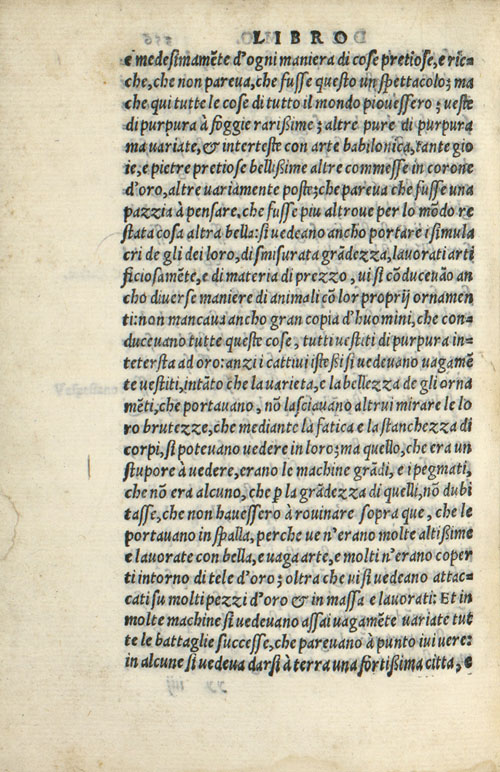 LIBRO
e medesimamẽte d'ogni maniera di cose pretiose, e ric-
che, che non pareva, che fusse questo un spettacolo; ma
che qui tutte le cose di tutto il mondo piovessero; veste
di purpura à foggie rarißime; altre pure di purpura
ma variate, & interteste con arte babilonica, tante gio
ie, e pietre pretiose bellißime altre commesse in corone
d'oro, altre variamente poste; che pareva che fusse una
pazzia à pensare, che fusse piu altrove per lo mõdo re
stata cosa altra bella: si vedeano ancho portare i simula
cri de gli dei loro, di smisurata grãdezza, lavorati arti
ficiosamẽte, e di materia di prezzo, vi si cõducevão an
cho diverse maniere di animali cõ lor proprij ornamen
ti: non mancava ancho gran copia d'huomini, che con-
ducevano tutte queste cose, tutti vestiti di purpura in-
tetersta ad oro: anzi i cattivi isteßi si vedevano vagamẽ
te vestiti, intãto che la varieta, e la bellezza de gli orna
mẽti, che portavano, nõ lasciavano altrui mirare le lo
ro brutezze, che mediante la fatica e la stanchezza di
corpi, si potevano vedere in loro; ma quello, che era un
stupore à vedere, erano le machine grãdi, e i pegmati,
che nõ era alcuno, che ꝑ la grãdezza di quelli, nõ dubi
tasse, che non havessero à rovinare sopra que, che le
portavano in spalla, perche ve n'erano molte altißime
e lavorate con bella, e vaga arte, e molti n'erano coper
ti intorno di tele d'oro; oltra che vi si vedeano attac-
cati su molti pezzi d'oro & in massa e lavorati: Et in
molte machine si vedevano assai vagamẽte variate tut
te le battaglie successe, che parevano à punto ivi vere:
in alcune si vedeva darsi à terra una fortißima citta, e